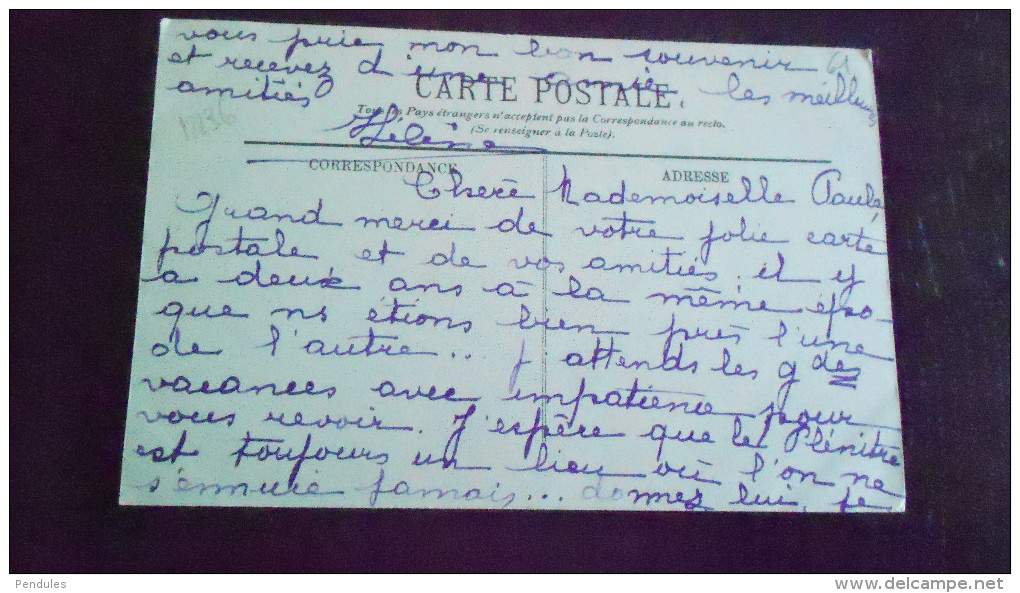 vous prie, mon bon souvenir à
et recevez d'une amie, les meilleures
amitiés
CARTE POSTALE.
Tous les Pays étrangers n'acceptent pas la Correspondance au recto.
(Se renseigner à la Poste).
Hélène
CORRESPONDANCE
ADRESSE
Chère Mademoiselle Paule,
Grand merci de votre jolie carte
postale et de vos amitiés. il y
a deux ans à la même épo-
que ns étions bien près l'une
de l'autre.. J'attends les gdes
vacances avec impatience pour
vous revoir. J'espère que le Plénitre
est toujours un lieu où l'on ne
s'ennuie jamais... donnez lui, je
Pendules
www.delcampe.net